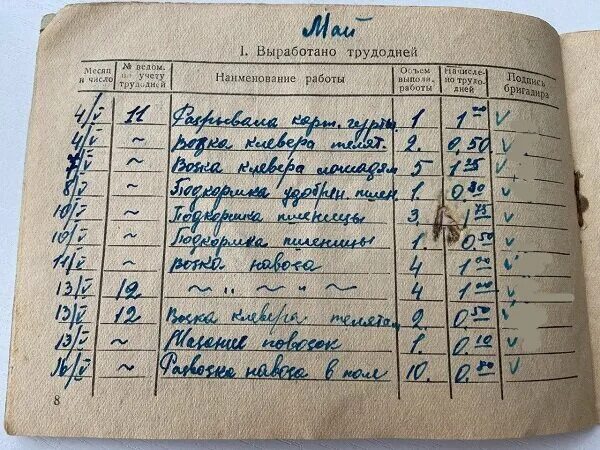 Май
1. Выработано трудодней
Месяц и число № ведом. по учету трудодней Наименование работы Объем выполн. работы Начислено трудодней Подпись бригадира
4/V 11 Разрывала карт. гурты 1. 1 00
4/V ~ Возка клевера телят. 2. 0,50
7/V ~ Возка клевера лошадям 5 1 25
8/V ~ Подкормка удобрен. пшен. 1. 0.80
10/V ~ Подкормка пшеницы 3. 1 75
10/V ~ Подкормка пшеницы 1. 0.50
11/V ~ Возка навоза 4 1 00
13/V 12 ~ " ~ " ~ 4 1 00
13/V 12 Возка клевера телятам 2. 0.50
13/V ~ Мазание повозок 1. 0.10
16/V ~ Развозка навоза в поле 10. 0.80
8